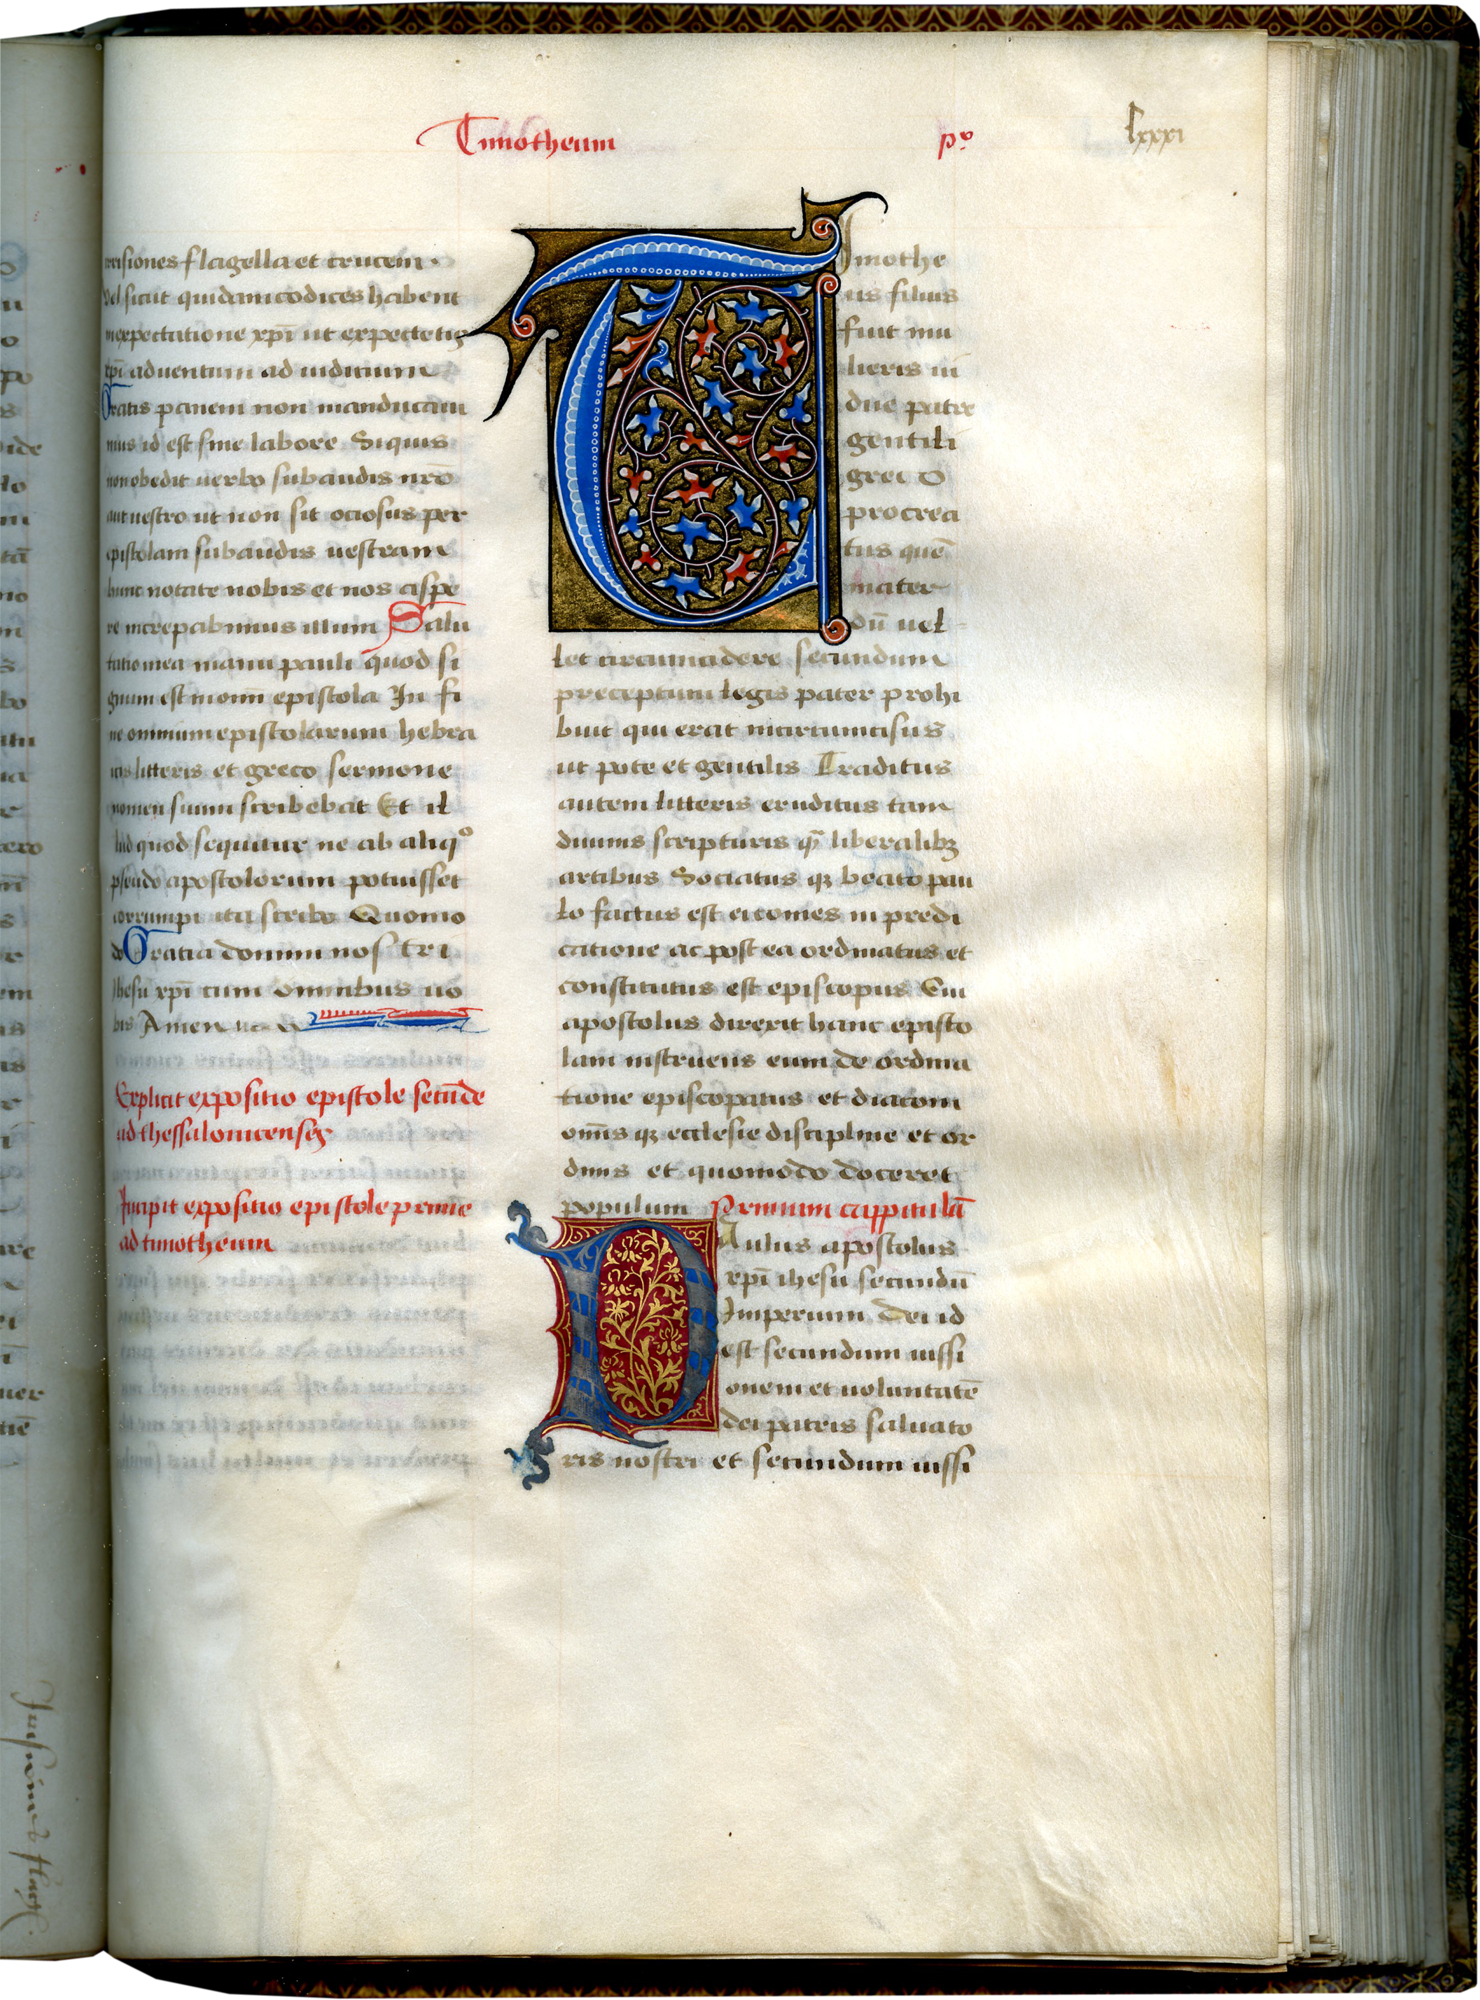 Timotheum
pº
lxxxi
risiones flagella et crucem.
vel sicut quidam codices habent
in expectatione xpī ut expectetis
xpī aduentum ad iudicium
Gratis panem non manducaui
mus id est sine labore Siquis
non obedit uerbo subaudis nr̄o
aut uestro ut non sit ociosus per
epistolam subaudis uestram
hunc notate nobis et nos aspe
re increpabimus illum Salu
tatio mea manu pauli quod si
gnum est in om̄i epistola In fi
ne omnium epistolarum hebra
icis litteris et greco sermone
nomen suum scribebat Et il
lud quod sequitur ne ab aliqº
pseudo apostolorum potuisset
corrumpi ita scribo Quomo
do Gratia domini nostri
ihesu xpī cum omnibus uo
bis Amen
Explicit expositio epistole secūde
ad thessalonicenses
Incipit expositio epistole prime
ad timotheum
Timothe
us filius
fuit mu
lieris iu
due patre
gentili
greco
procrea
tus quē
mater
dū uel
let circumcidere secundum
preceptum legis pater prohi
buit qui erat incircumcisus
ut pote et gentilis Traditus
autem litteris eruditus tam
diuinis scripturis qͣ liberalibꝫ
artibus Sociatus qꝫ beato pau
lo factus est ei comes in predi
catione ac post ea ordinatus et
constitutus est episcopus Cui
apostolus direxit hanc episto
lam instruens eum de ordina
tione episcopatus et diaconi
om̄is qꝫ ecclesie discipline et or
dinis et quomodo doceret
populum Primum cappitulū
Paulus apostolus
xpī ihesu secundū
Imperium dei id
est secundum iussi
onem et uoluntatē
dei patris saluato
ris nostri et secundum iussi